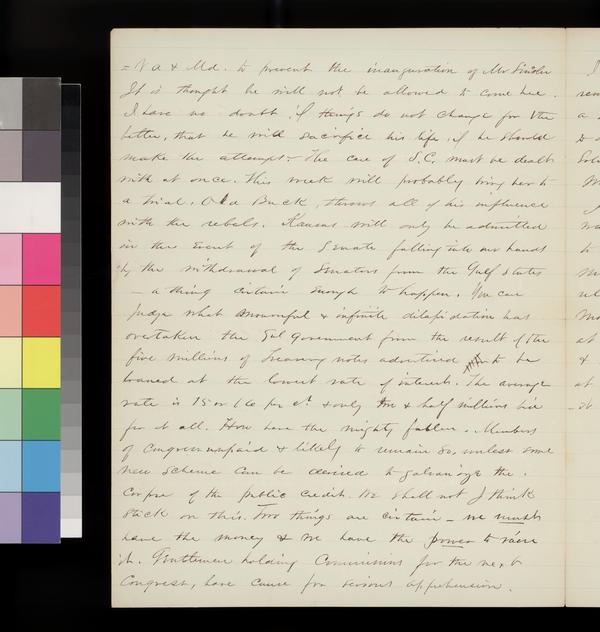 = Va & Md. to prevent the inauguration of Mr Lincoln
It is thought he will not be allowed to come here.
I have no doubt, if things do not change for the
better, that he will sacrifice his life, if he should
make the attempt. The case of S.C. must be dealt
with at once. This week will probably bring her to
a trial. Old Buck, throws all of his influence
with the rebels. Kansas will only be admitted
in the event of the Senate falling into our hands
by the withdrawal of Senators from the Gulf States
— a thing certain enough to happen. You can
judge what mournful & infinite dilapidation has
overtaken the Gul Government from the result of the
five millions of Treasury notes advertised to be
loaned at the lowest rate of interest. The average
rate is 15 or 16 per ct & only two & half millions bid
for at all. How have the mighty fallen. Members
of Congress unpaid & likely to remain so, unless some
new scheme can be devised to galvanize the
corpse of the public credit. We shall not I think
stick on this. Two things are certain — we must
have the money & we have the power to raise
it. Gentlemen holding Commissions for the next
Congress, have cause for serious apprehension.